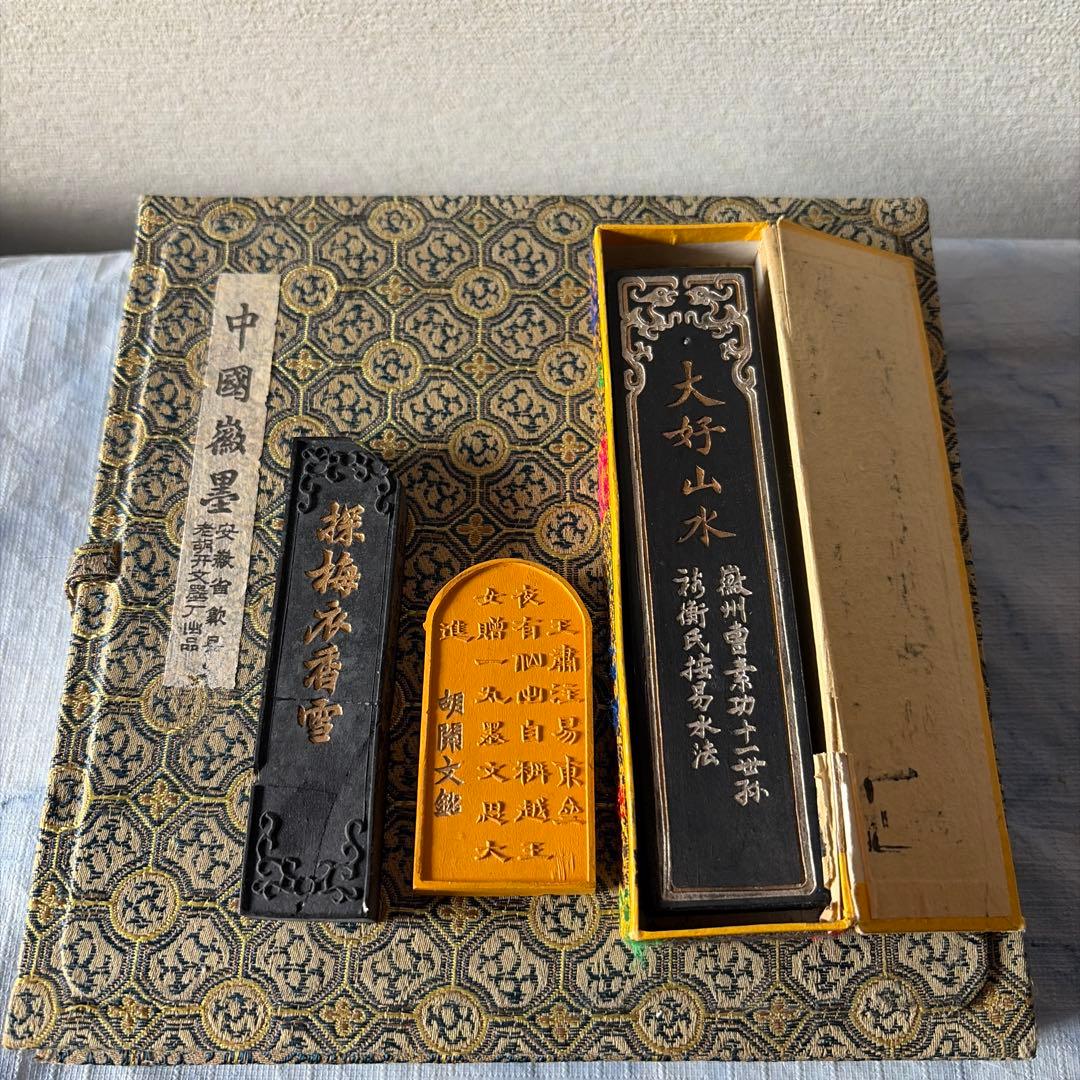 中國徽墨
安徽省歙县
老胡开文墨厂出品
探梅衣香雪
王肅注易東
夜有自稱越王
女贈一太墨文思大
進
胡開文
大好山水
徽州曹素功十一世孙
裕衡氏按易水法